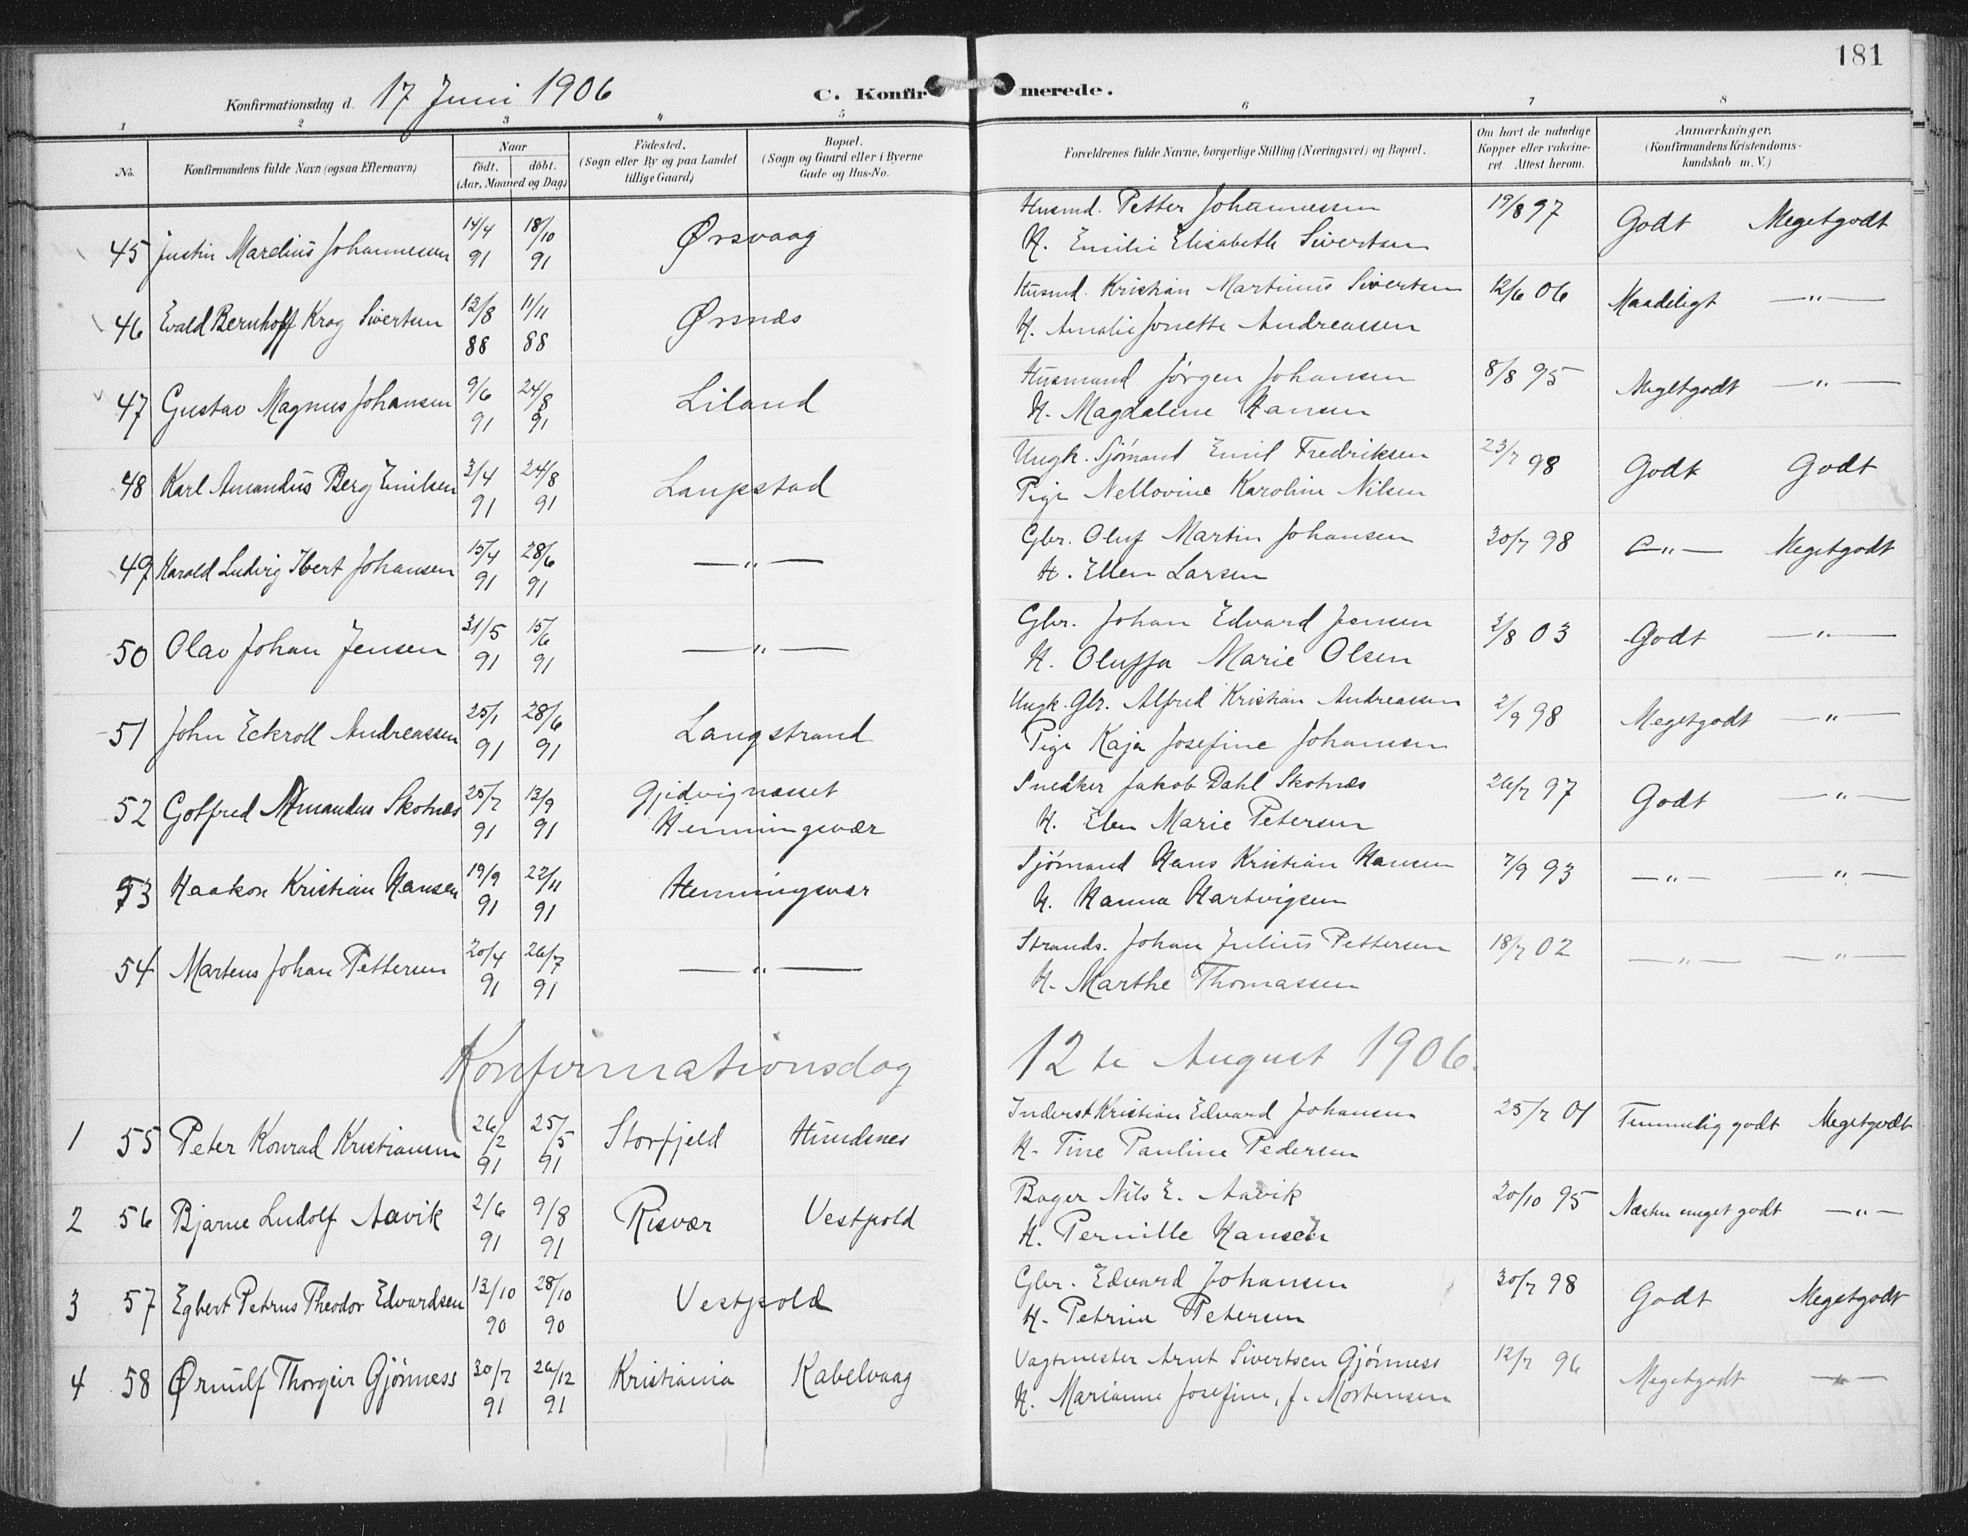 181
Konfirmationsdag d. 17 Juni 1906 C. Konfirmerede.
1 2 3 4 5 6 7 8
No. Konfirmandens fulde Navn (ogsaa Efternavn) Naar födt. döbt. (Aar, Maaned og Dag) Födested. (Sogn eller By og paa Landet tillige Gaard) Bopæl. (Sogn og Gaard eller i Byerne Gade og Hus-No. Forældrenes fulde Navne, borgerlige Stilling (Næringsvei) og Bopæl. Om havt de naturlige Kopper eller vakcineret Attest herom. Anmærkninger. (Konfirmandens Kristendomskundskab m. V.)
45 Justin Marelius Johannesen 14/4 91 18/10 91 Ørsvaag Husmd. Petter Johannessen 19/8 97 Godt Megetgodt
H. Emilie Elisabeth Sivertsen
46 Evald Bernhoff Krog Sivertsen 13/8 88 11/11 88 Ørsnæs Husmd. Kristian Martinus Sivertsen 12/6 06 Maadeligt —"—
H. Amalie Jonette Andreassen
47 Gustav Magnus Johansen 9/6 91 24/8 91 Liland Husmand Jörgen Johansen 8/8 95 Megetgodt —"—
H. Magdalene Hansen
48 Karl Amandus Berg Emilsen 3/4 91 24/8 91 Laupstad Ungk. Sjömand Emil Fredriksen 23/7 98 Godt Godt
Pige Nellovine Karoline Nilsen
49 Harald Ludvig Ibert Johansen 15/4 91 28/6 91 —"— Gbr. Oluf Martin Johansen 30/7 98 —"— Megetgodt
H. Ellen Larsen
50 Olav Johan Jensen 31/5 91 15/6 91 —"— Gbr. Johan Edvard Jensen 2/8 03 Godt —"—
H. Oluffa Marie Olsen
51 John Eckroll Andreassen 25/1 91 28/6 91 Langstrand Ungk. Gbr. Alfred Kristian Andreassen 2/9 98 Megetgodt —"—
Pige Kaja Josefine Johansen
52 Gotfred Amandus Skotnæs 25/7 91 13/9 91 Gjedvignæsset Henningsvær Snedker Jakob Dahl Skotnæs 26/7 97 Godt —"—
H. Elen Marie Petersen
53 Haakon Kristian Hansen 19/9 91 22/11 91 Henningsvær Sjömand Hans Kristian Hansen 7/9 93 —"— —"—
H. Hanna Hartvigsen
54 Martens Johan Pettersen 20/4 91 26/7 91 —"— Strands. Johan Julius Pettersen 18/7 02 —"— —"—
H. Marthe Thomassen
Konfirmationsdag 12te August 1906.
1 55 Peter Konrad Kristiansen 26/2 91 25/5 91 Storfjeld Hundsnes Inderst Kristian Edvard Johansen 25/7 01 Temmelig godt Megetgodt
H. Tine Pauline Pedersen
2 56 Bjarne Ludolf Aavik 2/6 91 9/8 91 Risvær Vestpold Bager Nils E. Aavik 20/10 95 Næsten meget godt —"—
H. Pernille Hansen
3 57 Egbert Petrus Theodor Edvardsen 13/10 90 28/10 90 Vestpold Gbr. Edvard Johansen 30/7 98 Godt Megetgodt
H. Petrine Petersen
4 58 Ørnulf Thorgeir Gjönness 30/7 91 26/12 91 Kristiania Kabelvaag Vagtmester Arnt Sivertsen Gjönness 12/7 96 Megetgodt —"—
H. Marianne Josefine, f. Mortensen